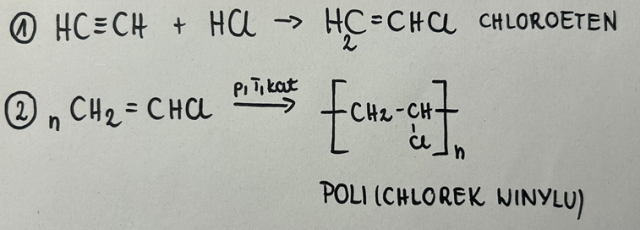 ① HC≡CH + HCl → H₂C=CHCl CHLOROETEN
② n CH₂=CHCl p,T,kat → [-CH₂-CH(Cl)-]n
POLI (CHLOREK WINYLU)